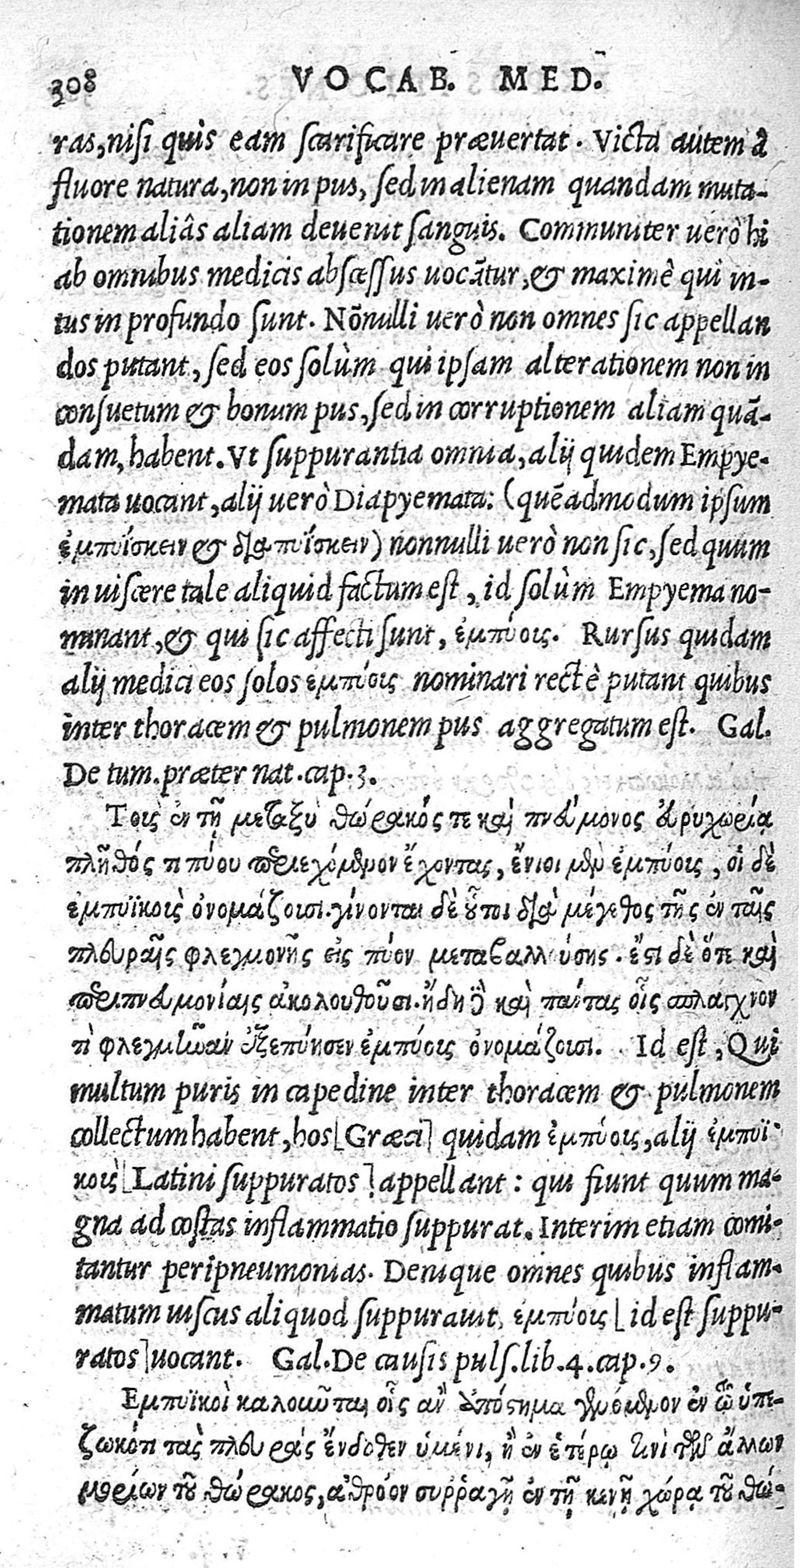 308 VOCAB. MED.
ras, nisi quis eam scarificare præuertat. Victa autem à
fluore natura, non in pus, sed in alienam quandam muta-
tionem aliâs aliam deuenit sanguis. Communiter uerò hi
ab omnibus medicis abscessus uocãtur, & maximè qui in-
tus in profundo sunt. Nõnulli uerò non omnes sic appellan
dos putant, sed eos solùm qui ipsam alterationem non in
consuetum & bonum pus, sed in corruptionem aliam quã-
dam, habent. Vt suppurantia omnia, alij quidem Empye-
mata uocant, alij uerò Diapyemata: (quẽadmodum ipsum
ἐμπυΐσκειν & διαπυΐσκειν) nonnulli uerò non sic, sed quum
in uiscere tale aliquid factum est, id solùm Empyema no-
minant, & qui sic affecti sunt, ἐμπύοις. Rursus quidam
alij medici eos solos ἐμπύοις nominari rectè putant quibus
inter thoracem & pulmonem pus aggregatum est. Gal.
De tum. præter nat. cap. 3.
Τοὺς ἐν τῇ μεταξὺ θώρακός τε καὶ πνεύμονος εὐρυχωρίᾳ
πλῆθός τι πύου περιεχόμενον ἔχοντας, ἔνιοι μὲν ἐμπύοις, οἱ δὲ
ἐμπυϊκοὺς ὀνομάζουσι. γίνονται δὲ οὗτοι διὰ μέγεθος τῆς ἐν ταῖς
πλευραῖς φλεγμονῆς εἰς πύον μεταβαλλούσης. ἔστι δὲ ὅτε καὶ
περιπνευμονίαις ἀκολουθοῦσι. ἤδη δὲ καὶ πάντας οἷς σπλάγχνον
τι φλεγμῶναν ἐξεπύησεν ἐμπύοις ὀνομάζουσι. Id est, Qui
multum puris in capedine inter thoracem & pulmonem
collectum habent, hos [Græci] quidam ἐμπύοις, alij ἐμπυϊ-
κοὺς [Latini suppuratos] appellant: qui fiunt quum ma-
gna ad costas inflammatio suppurat. Interim etiam comi-
tantur peripneumonias. Denique omnes quibus inflam-
matum uiscus aliquod suppurauit, ἐμπύοις [id est suppu-
ratos] uocant. Gal. De causis puls. lib. 4. cap. 9.
Εμπυϊκοὶ καλοῦνται οἷς ἂν ἀπόστημα γενόμενον ἐν τῷ ὑπε-
ζωκότι τὰς πλευρὰς ἔνδοθεν ὑμένι, ἢ ἐν ἑτέρῳ τινὶ τῶν ἄλλων
μορίων τοῦ θώρακος, ἀθρόον συρραγῇ ἐν τῇ κενῇ χώρᾳ τοῦ θώ-